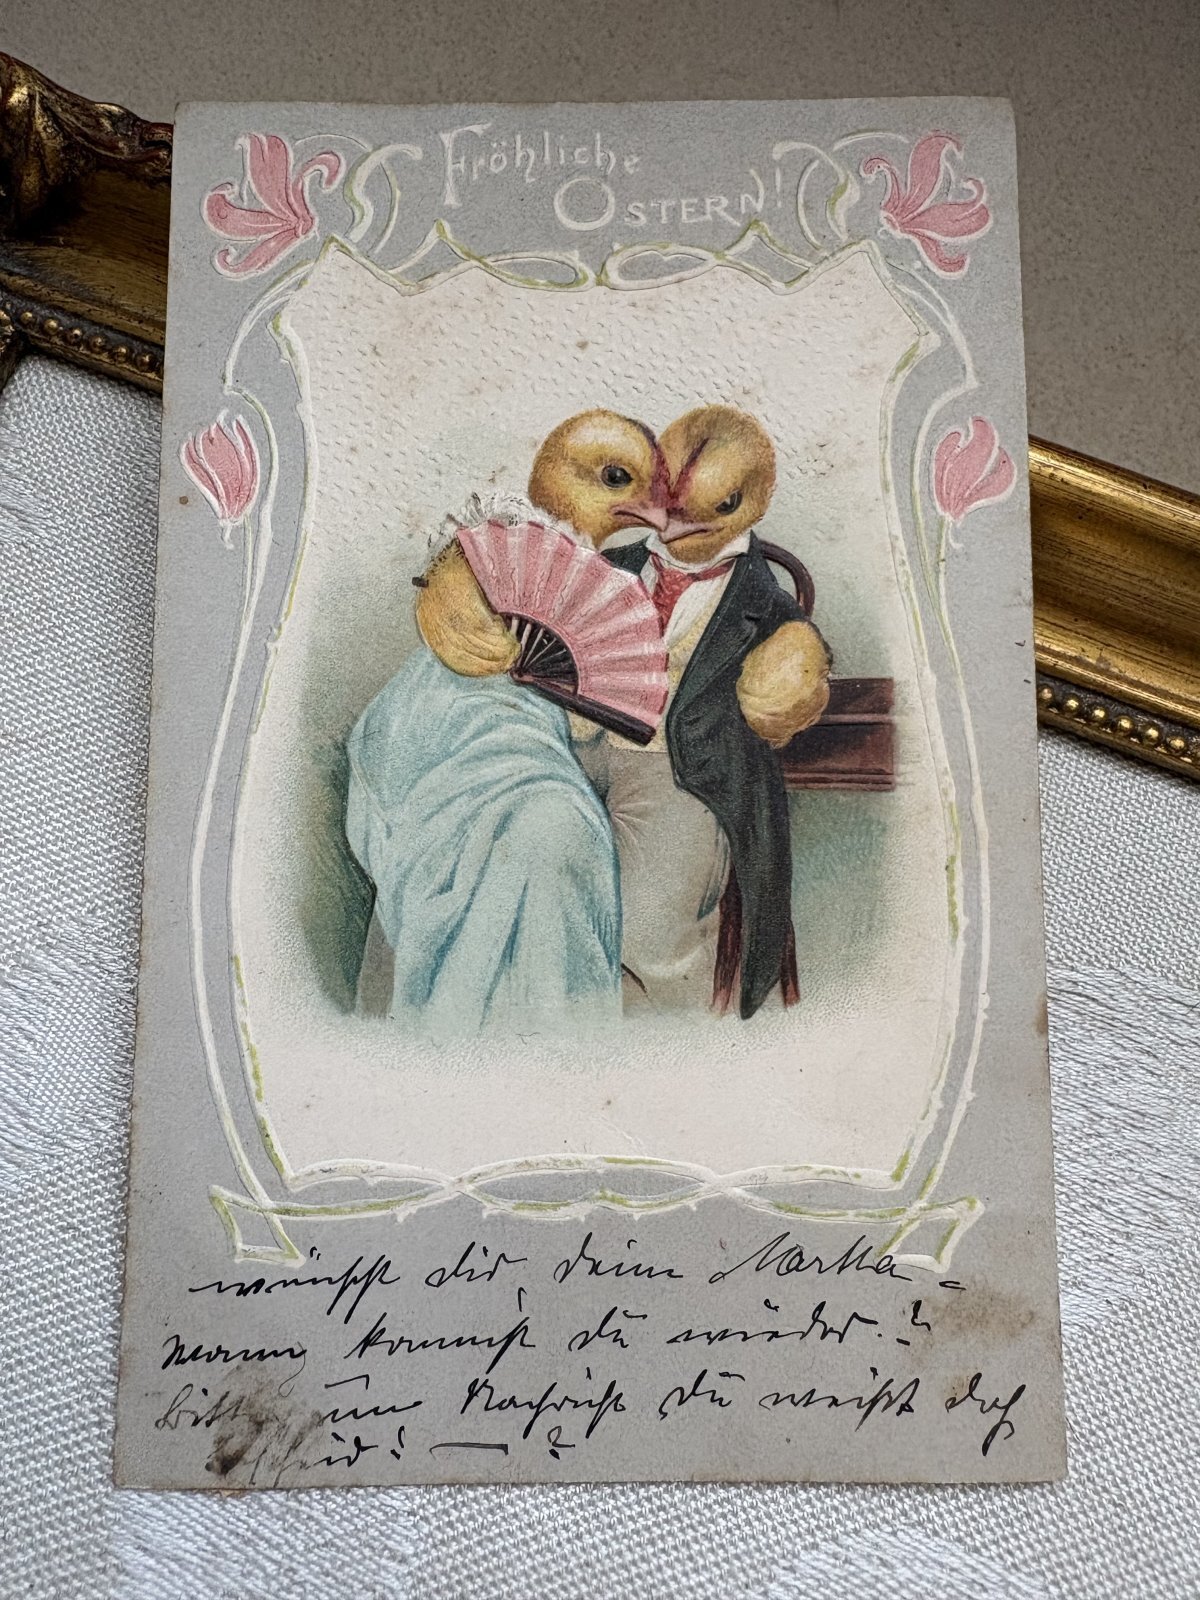 Fröhliche
Ostern!
wünscht dir, deine Martha –
Wann kommst du wieder.?
Bitte um Nachricht du weißt doch
Bescheid! — ?